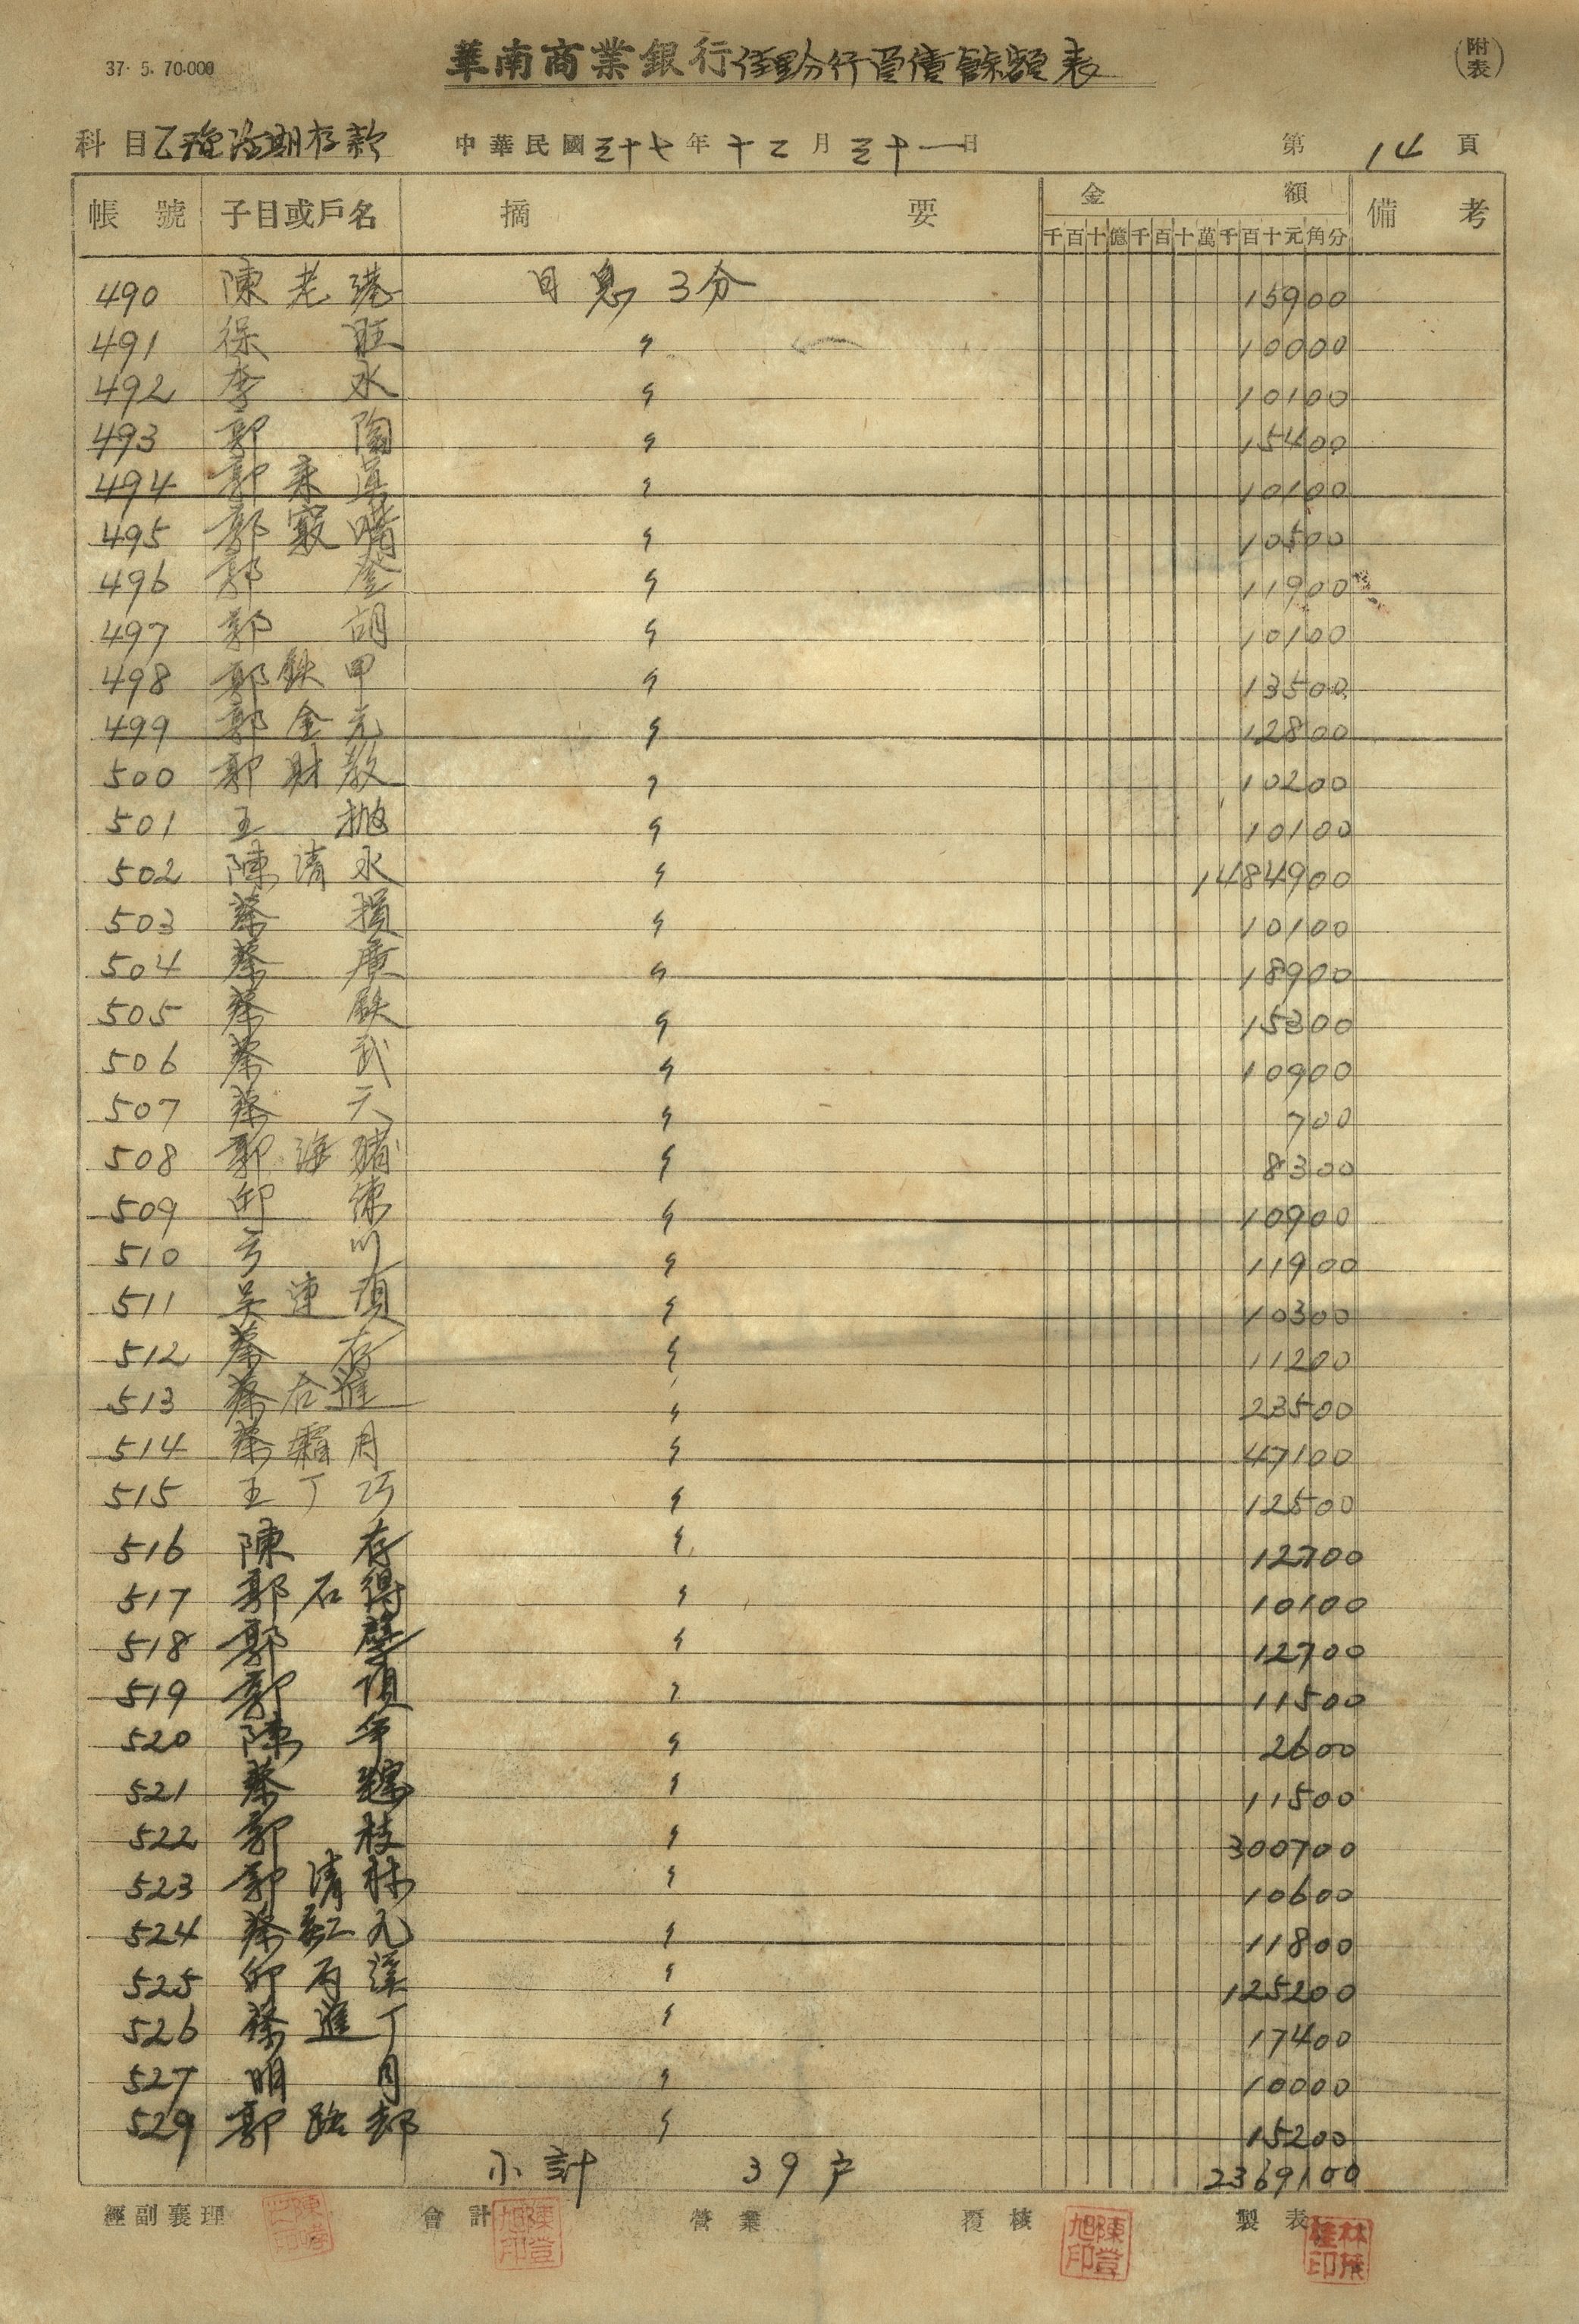 37. 5. 70.000
華南商業銀行佳里分行資債餘額表
(附表)
科目 乙種活期存款 中華民國 三十七 年 十二 月 三十一 日 第 14 頁
帳號 子目或戶名 摘要 金額 備考
千百十億千百十萬千百十元角分
490 陳老港 日息 3分 15900
491 徐旺 〃 10000
492 李水 〃 10100
493 郭陶 〃 15400
494 郭來 〃 10100
495 郭 〃 10500
496 郭登 〃 11900
497 郭胡 〃 10100
498 郭鉄甲 〃 13500
499 郭金 〃 12800
500 郭財教 〃 10200
501 王拋 〃 10100
502 陳清水 〃 1484900
503 蔡損 〃 10100
504 蔡廣 〃 18900
505 蔡鉄 〃 15300
506 蔡武 〃 10900
507 蔡天 〃 700
508 郭海豬 〃 8300
509 邱練 〃 10900
510 方川 〃 11900
511 吳連 〃 10300
512 蔡存 〃 11200
513 蔡合進 〃 23500
514 蔡霜月 〃 47100
515 王丁巧 〃 12500
516 陳存 〃 12700
517 郭石得 〃 10100
518 郭 〃 12700
519 郭頂 〃 11500
520 陳年 〃 2600
521 蔡 〃 11500
522 郭枝 〃 300700
523 郭清林 〃 10600
524 蔡紅九 〃 11800
525 邱丙溪 〃 125200
526 蔡進丁 〃 17400
527 明月 〃 10000
529 郭 〃 15200
小計 39戶 2369100
經副襄理 會計 營業 覆核 製表
陳登旭印 陳登旭印 林葉桂印